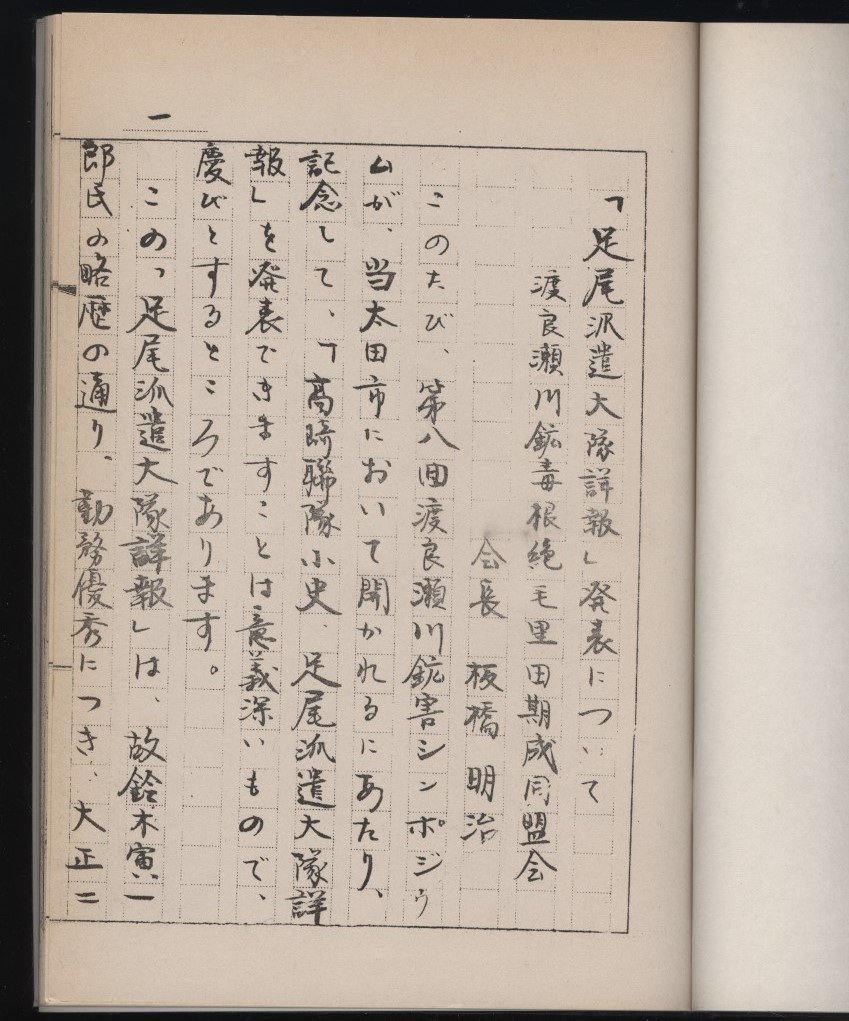 「足尾派遣大隊詳報」発表について
渡良瀬川鉱毒根絶毛里田期成同盟会
会長 板橋明治
このたび、第八回渡良瀬川鉱害シンポジウ
ムが、当太田市において開かれるにあたり、
記念して、「高崎聯隊小史、足尾派遣大隊詳
報」を発表できますことは意義深いもので、
慶びとするところであります。
この「足尾派遣大隊詳報」は、故鈴木寅一
郎氏の略歴の通り、勤務優秀につき、大正二
一